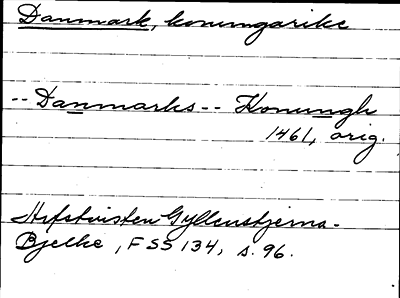 Danmark, konungarike
-- Danmarks -- Konungh
1461, orig.
Hifstvisten Gyllenstjerna-
Bjelke, FSS 134, s. 96.